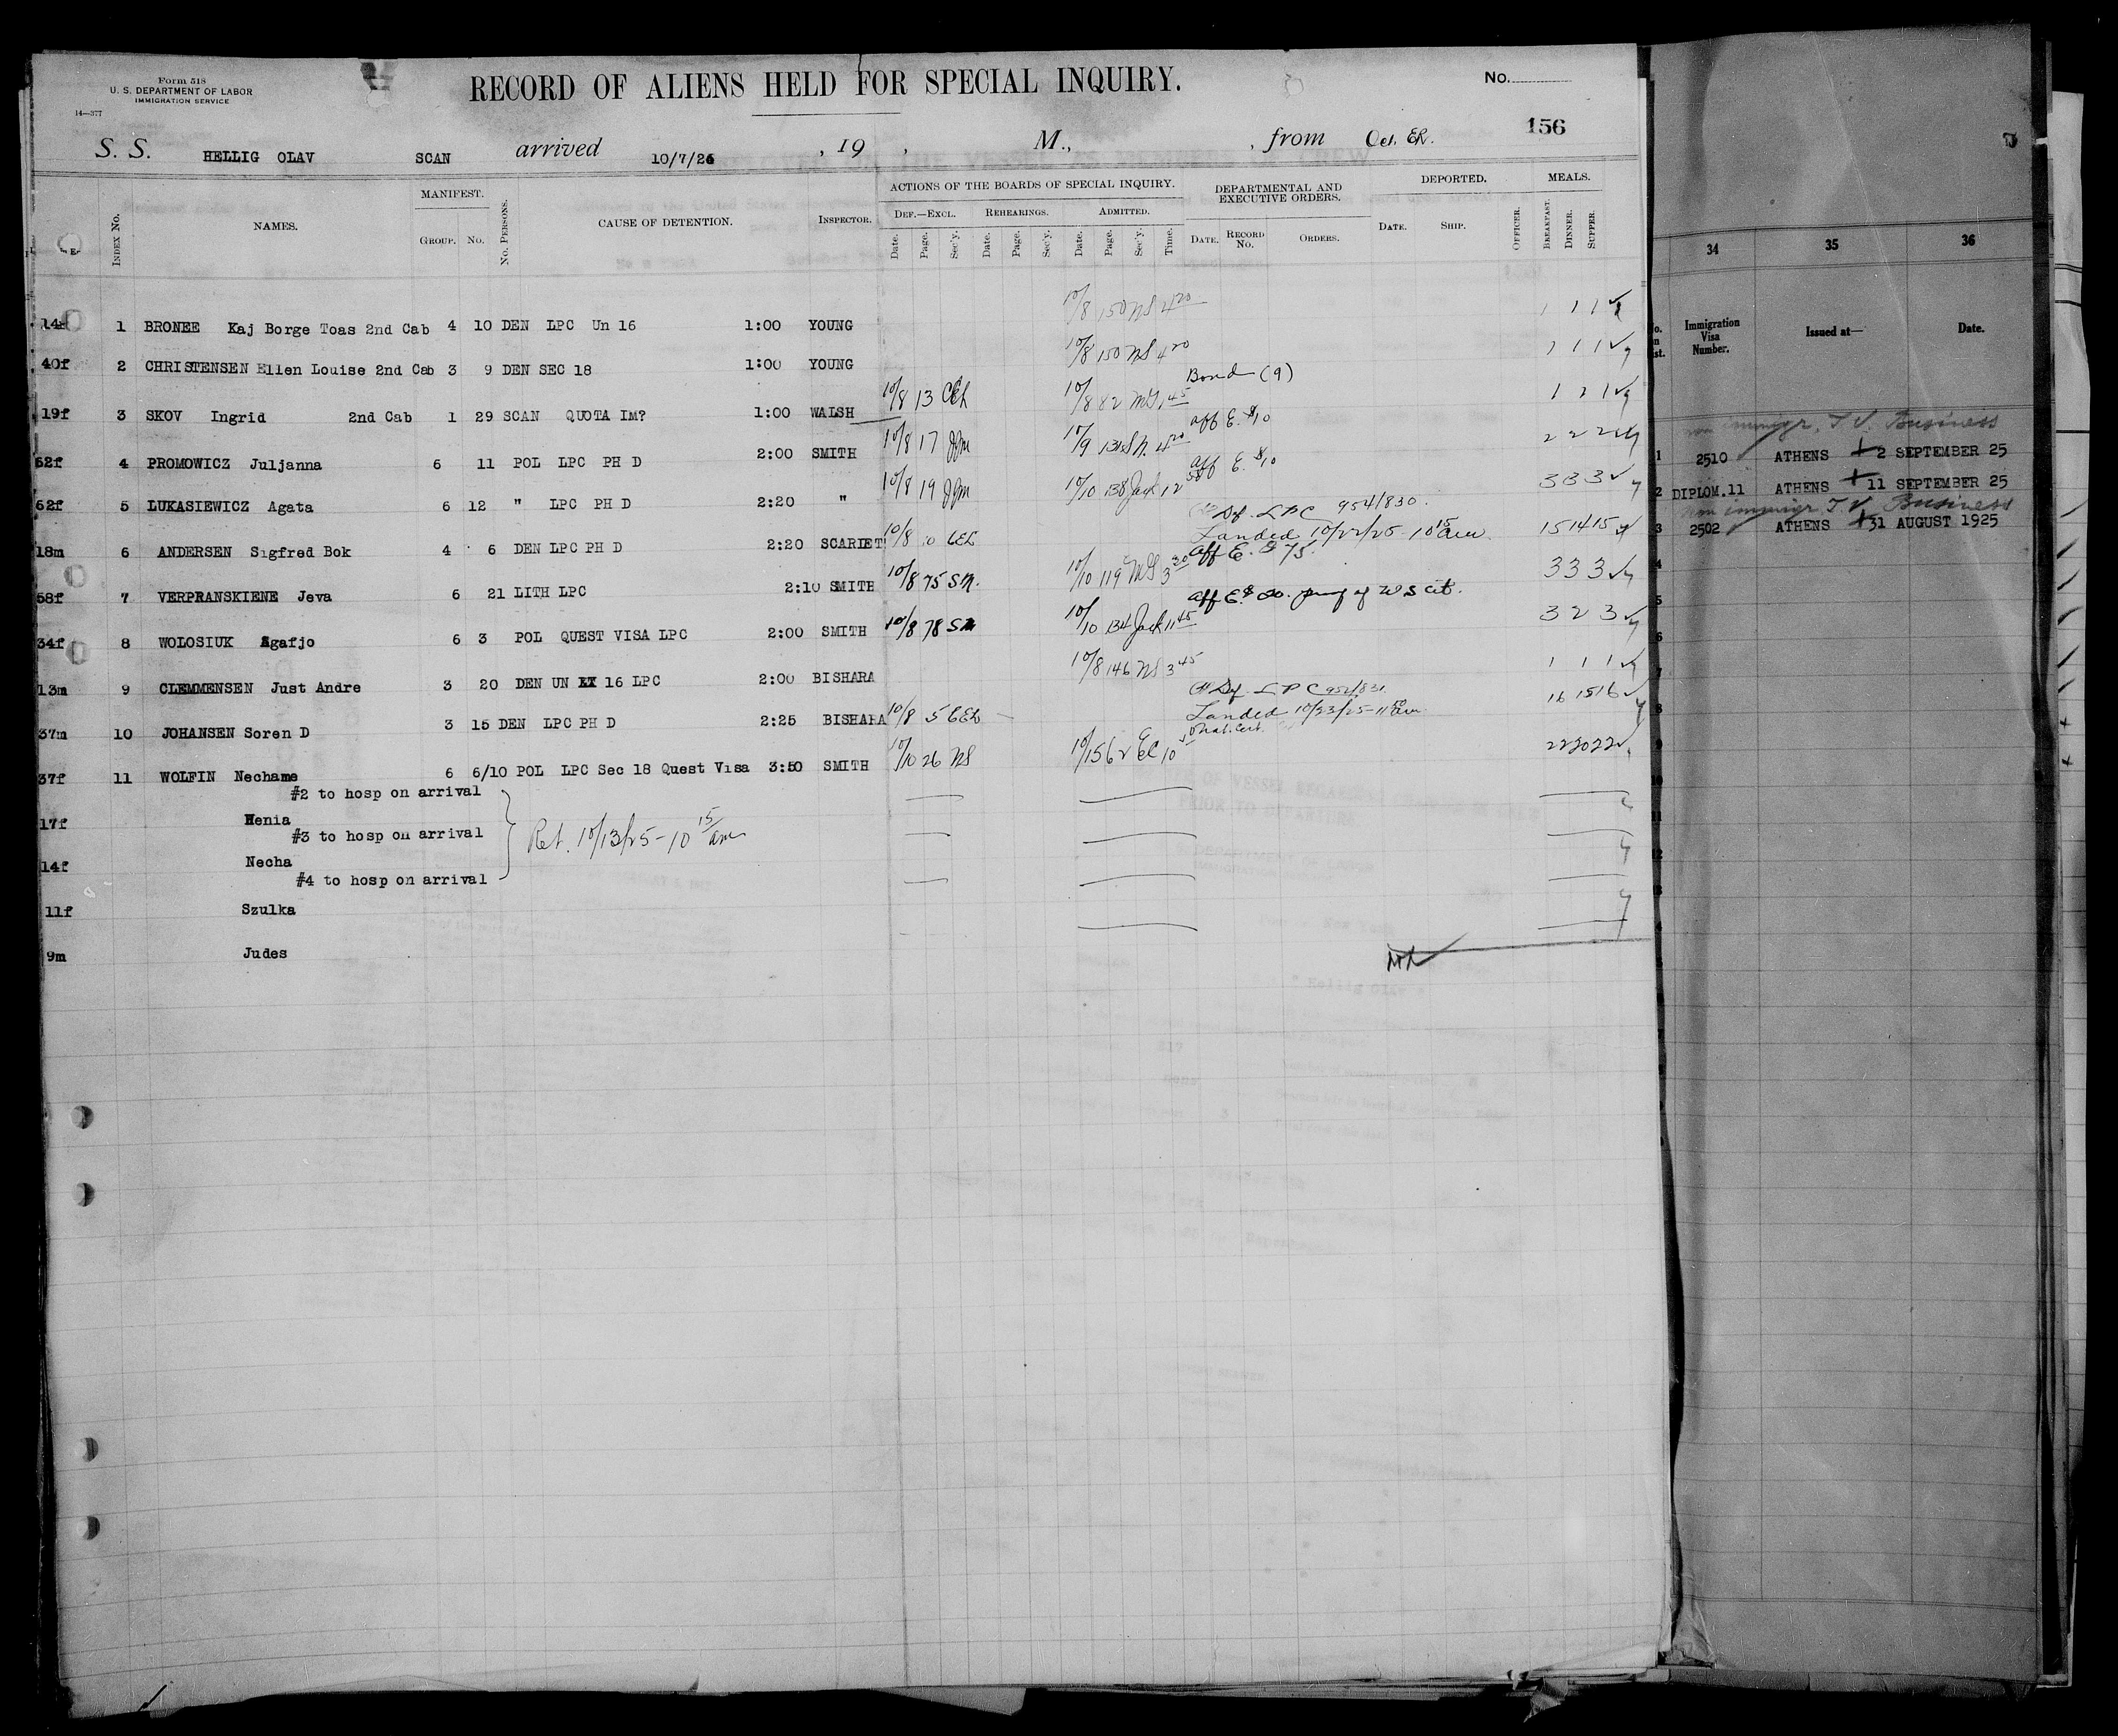 Form 518
U. S. DEPARTMENT OF LABOR
IMMIGRATION SERVICE
14—377
RECORD OF ALIENS HELD FOR SPECIAL INQUIRY.
No.
156
S. S. HELLIG OLAV SCAN arrived 10/7/25 , 19 , M., , from Oct. ER.
INDEX No. NAMES. MANIFEST. GROUP. No. No. PERSONS. CAUSE OF DETENTION. INSPECTOR. ACTIONS OF THE BOARDS OF SPECIAL INQUIRY. DEF.—EXCL. REHEARINGS. ADMITTED. Date. Page. Sec'y. Date. Page. Sec'y. Date. Page. Sec'y. Time. DEPARTMENTAL AND EXECUTIVE ORDERS. DATE. RECORD No. ORDERS. DEPORTED. DATE. SHIP. OFFICER. MEALS. BREAKFAST. DINNER. SUPPER.
1 BRONEE Kaj Borge Toas 2nd Cab 4 10 DEN LPC Un 16 1:00 YOUNG 10/8 150 NS 4 20 1 1 1
40f 2 CHRISTENSEN Ellen Louise 2nd Cab 3 9 DEN SEC 18 1:00 YOUNG 10/8 150 NS 4 20 1 1 1
Bond (9)
19f 3 SKOV Ingrid 2nd Cab 1 29 SCAN QUOTA IM? 1:00 WALSH 10/8 13 10/8 82 MG 1 45 1 2 1
aff E. $10
52f 4 PROMOWICZ Juljanna 6 11 POL LPC PH D 2:00 SMITH 10/8 17 10/9 2 2 2
aff E. $10
52f 5 LUKASIEWICZ Agata 6 12 " LPC PH D 2:20 " 10/8 19 10/10 138 Jack 12 3 3 3
Def. LPC 954/830.
Landed 10/22/25 - 10 15 am
18m 6 ANDERSEN Sigfred Bok 4 6 DEN LPC PH D 2:20 SCARLET 10/8 10 CEL 15 14 15
aff E. $75.
58f 7 VERPRANSKIENE Jeva 6 21 LITH LPC 2:10 SMITH 10/8 75 SM. 10/10 119 MG 3 30 3 3 3
aff E. $20. proof of US cit.
34f 8 WOLOSIUK Agafjo 6 3 POL QUEST VISA LPC 2:00 SMITH 10/8 78 SM 10/10 134 Jack 11 45 3 2 3
13m 9 CLEMMENSEN Just Andre 3 20 DEN UN 16 LPC 2:00 BISHARA 10/8 146 NS 3 45 1 1 1
Def. LPC 954/831.
Landed 10/23/25 - 11 am
37m 10 JOHANSEN Soren D 3 15 DEN LPC PH D 2:25 BISHARA 10/8 5 CEL 16 15 16
Nat. Cert.
37f 11 WOLFIN Nechame 6 6/10 POL LPC Sec 18 Quest Visa 3:50 SMITH 10/10 26 NS 10/15 62 EC 10 22 20 22
#2 to hosp on arrival
17f Henia
#3 to hosp on arrival
Ret. 10/13/25 - 10 15 am
14f Necha
#4 to hosp on arrival
11f Szulka
9m Judes
34 35 36
Immigration Visa Number. Issued at— Date.
non immigr. T. V. Business
1 2510 ATHENS 2 SEPTEMBER 25
2 DIPLOM.11 ATHENS 11 SEPTEMBER 25
non immigr T V. Business
3 2502 ATHENS 31 AUGUST 1925
4
5
6
7
8
9
10
11
12
13